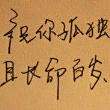 祝你孤独
且长命百岁.